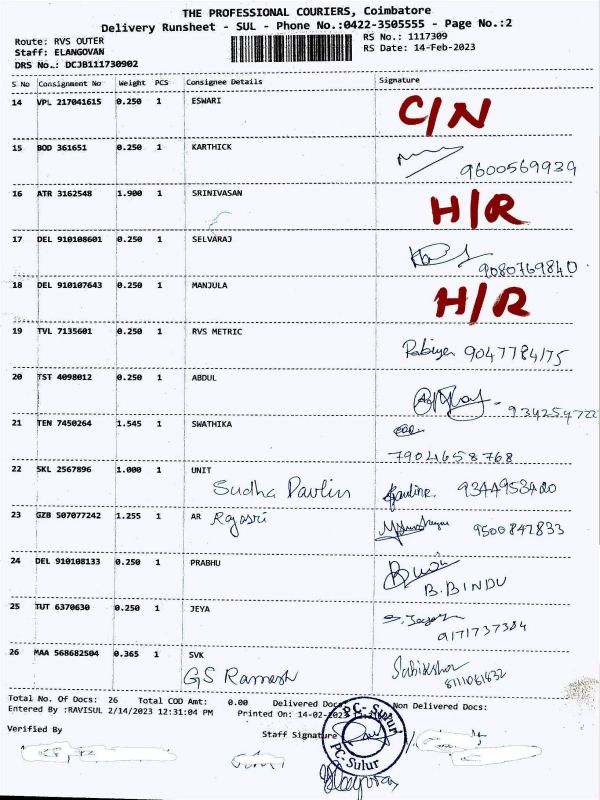 THE PROFESSIONAL COURIERS, Coimbatore
Delivery Runsheet - SUL - Phone No.:0422-3505555 - Page No.:2
Route: RVS OUTER RS No.: 1117309
Staff: ELANGOVAN RS Date: 14-Feb-2023
DRS No.: DCJB111730902
S No Consignment No Weight PCS Consignee Details Signature
14 VPL 217041615 0.250 1 ESWARI C/N
15 BOD 361651 0.250 1 KARTHICK
9600569939
16 ATR 3162548 1.900 1 SRINIVASAN H/R
17 DEL 910108601 0.250 1 SELVARAJ
9080769840
18 DEL 910107643 0.250 1 MANJULA H/R
19 TVL 7135601 0.250 1 RVS METRIC
9047784175
20 TST 4098012 0.250 1 ABDUL
21 TEN 7450264 1.545 1 SWATHIKA
7904658768
22 SKL 2567896 1.000 1 UNIT
Sudha Pavlin 9344953400
23 GZB 507077242 1.255 1 AR
9500847833
24 DEL 910108133 0.250 1 PRABHU
B.BINDU
25 TUT 6370630 0.250 1 JEYA
9171737384
26 MAA 568682504 0.365 1 SVK
GS Ramesh
Total No. Of Docs: 26 Total COD Amt: 0.00 Delivered Docs: Non Delivered Docs:
Entered By :RAVISUL 2/14/2023 12:31:04 PM Printed On: 14-02-2023
Verified By Staff Signature
PC- Sulur
PC-Sulur